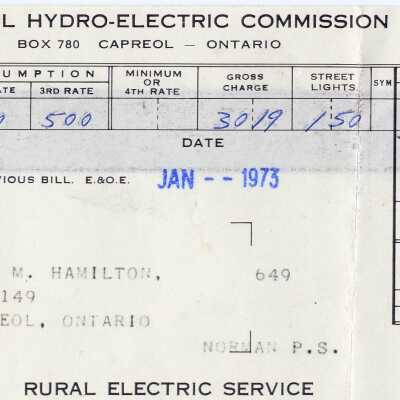 L HYDRO-ELECTRIC COMMISSION
BOX 780 CAPREOL — ONTARIO
UMPTION MINIMUM OR 4TH RATE GROSS CHARGE STREET LIGHTS SYM
ATE 3RD RATE
0 500 30 19 1 50
DATE
VIOUS BILL. E.&O.E. JAN -- 1973
M. HAMILTON, 649
149
EOL, ONTARIO
NORMAN P.S.
RURAL ELECTRIC SERVICE